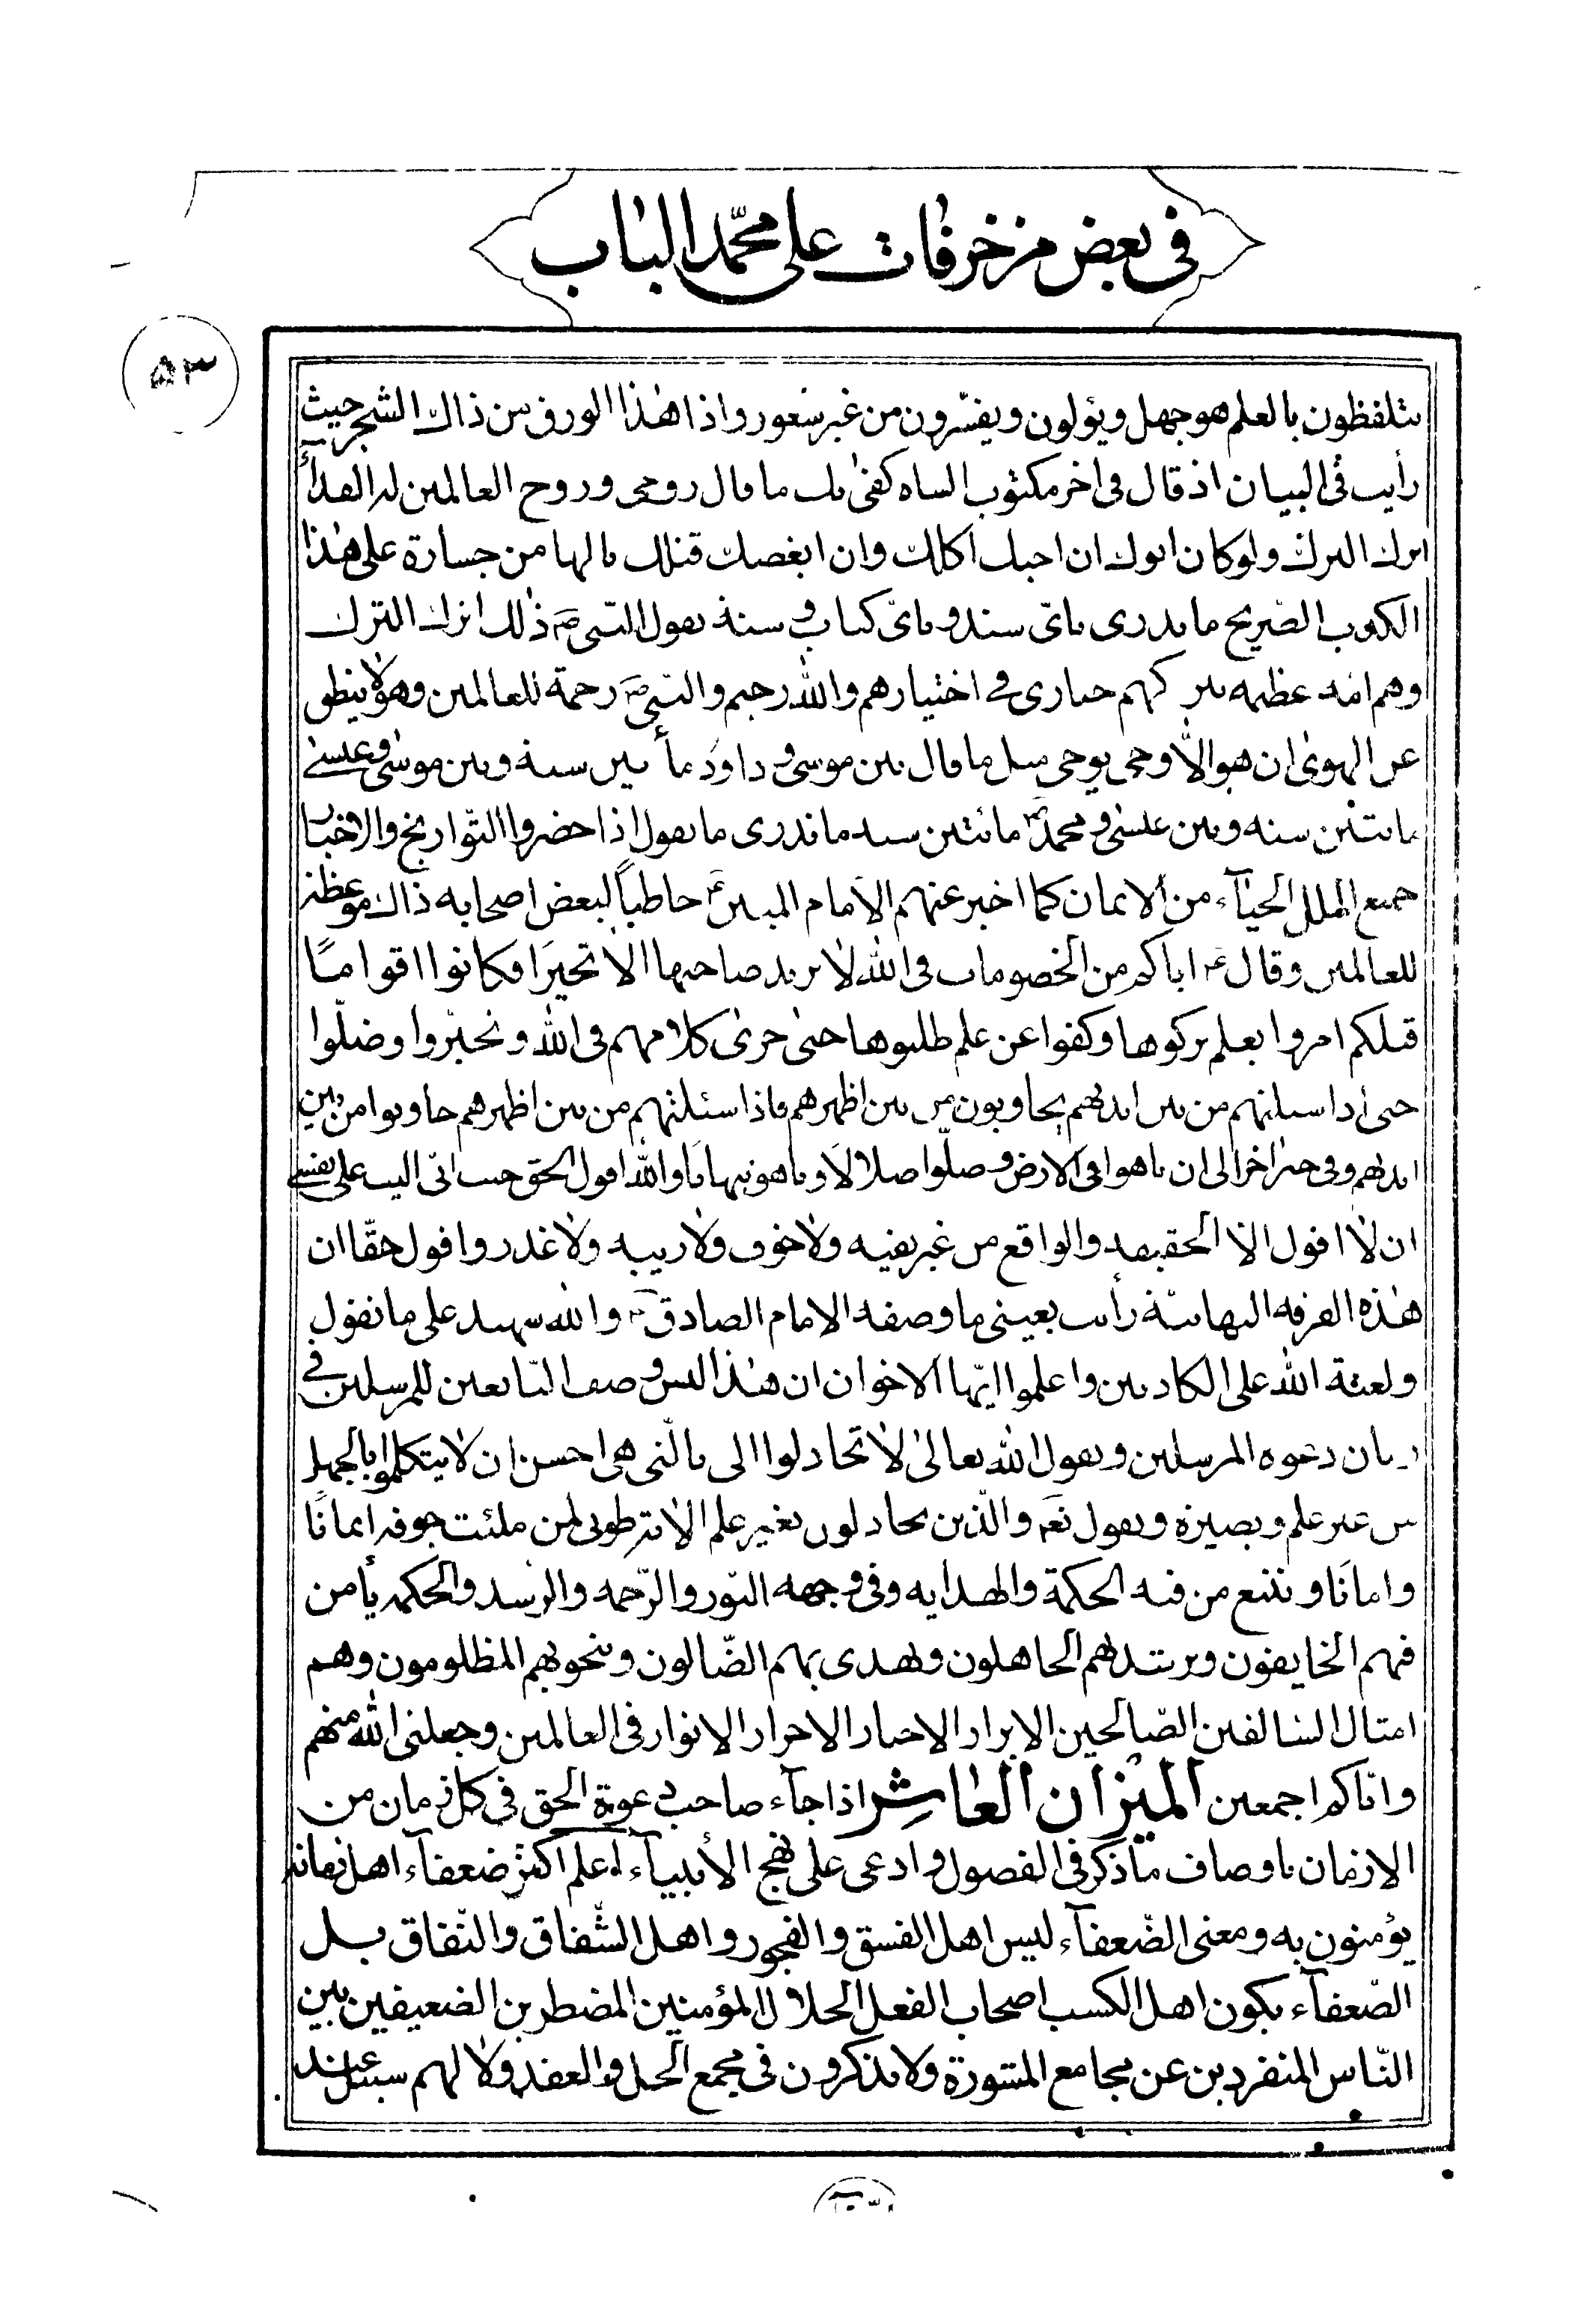 في بعض مزخرفات علی محمّد الباب
۵۳
يتلفظون بالعلم هو جهل ويؤلون ويفسّرون من غير شعور واذا هذا الورق من ذاك الشجر حيث
رأيت في البيان اذ قال في اخر مكتوب الساه كفى بك ما قال روحي وروح العالمين له الفدآء
اترك الترك ولو كان ابوك ان احبك اكلك وان ابغضك قتلك يا لها من جسارة على هذا
الكذب الصّريح ما يدرى باىّ سند وباىّ كتاب و سنة يقول النبى ص ذلك اترك الترك
وهم امّة عظيمه كهم حيارى في اختيارهم والله رحيم والنبى ص رحمة للعالمين وهو لا ينطق
عن الهوى ان هو الّا وحى يوحى مثل ما قال بين موسى و داود مأتين سنة وبين موسى و عيسى
مائتين سنه وبين عيسى و محمّد ص مائتين سنه ماندرى ما يقول اذا حضروا التّواريخ والاخبار
جميع الملل الحيآء من الايمان كما اخبر عنهم الامام المبين ع خاطباً لبعض اصحابه ذاك موعظة
للعالمين وقال ع اياكم من الخصومات في الله لا يريد صاحبها الا تحيرًا فكانوا اقوامًا
قبلكم امروا بعلم تركوها وكفوا عن علم طلبوها حتى جرى كلامهم في الله و تحيّروا وضلّوا
حتى اذا سئلتهم من بين ايديهم يجاوبون من بين اظهرهم فاذا سئلتهم من بين اظهرهم جاوبوا من بين
ايديهم وفى خبر اخر الى ان تاهوا في الارض و ضلّوا ضلالًا وتاهو تيهانًا والله اقول الحق حيث انّى اليت على نفسى
ان لا اقول الا الحقيقه والواقع من غير تقيه ولا خوف ولا ريبه ولا غدر واقول حقّا ان
هذه الفرقه البهائيّة رأيت بعينى ما وصفه الامام الصادق ع والله شهيد على ما نقول
ولعنة الله على الكاذبين واعلموا ايّها الاخوان ان هذا ليس وصف التابعين للمرسلين في
زمان دعوه المرسلين ويقول الله تعالى لا تجادلوا الى بالّتى هى احسن ان لا يتكلموا بالجهل
من غير علم وبصيرة ويقول تعَ والّذين يجادلون بغير علم الاية طوبى لمن ملئت جوفه ايمانًا
وامانًا و تنبع من فيه الحكمة والهدايه وفى وجهه النّور والرّحمه والرّشد والحكمه يأمن
فيهم الخايفون ويرتشد لهم الجاهلون ويهدى بهم الضّالون وينجو بهم المظلومون وهم
امثال السالفين الصّالحين الابرار الاخيار الاحرار الانوار في العالمين وجعلنى الله منهم
وايّاكم اجمعين الميزان العاشر اذا جآء صاحب دعوة الحق في كل زمان من
الازمان باوصاف ما ذكر في الفصول و ادعى على نهج الأنبيآء اعلم اكثر ضعفآء اهل زمانه
يؤمنون به ومعنى الضّعفآء ليس اهل الفسق والفجور و اهل الشّقاق والنّفاق بل
الضّعفآء يكون اهل الكسب اصحاب الفعل الحلال المؤمنين المضطرين الضعيفين بين
النّاس المنفردين عن مجامع المشورة ولا يذكرون في مجمع الحل والعقد ولا لهم سبيل عند